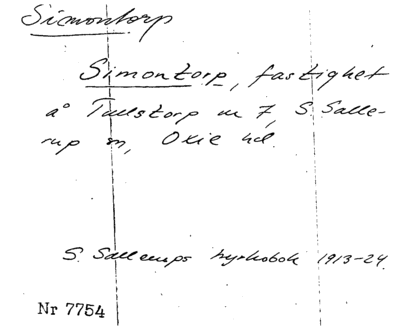 Simontorp
Simontorp, fastighet
å Tullstorp nr 7, S. Salle-
rup sn, Oxie hd.
S. Sallerups kyrkobok 1913-24.
Nr 7754